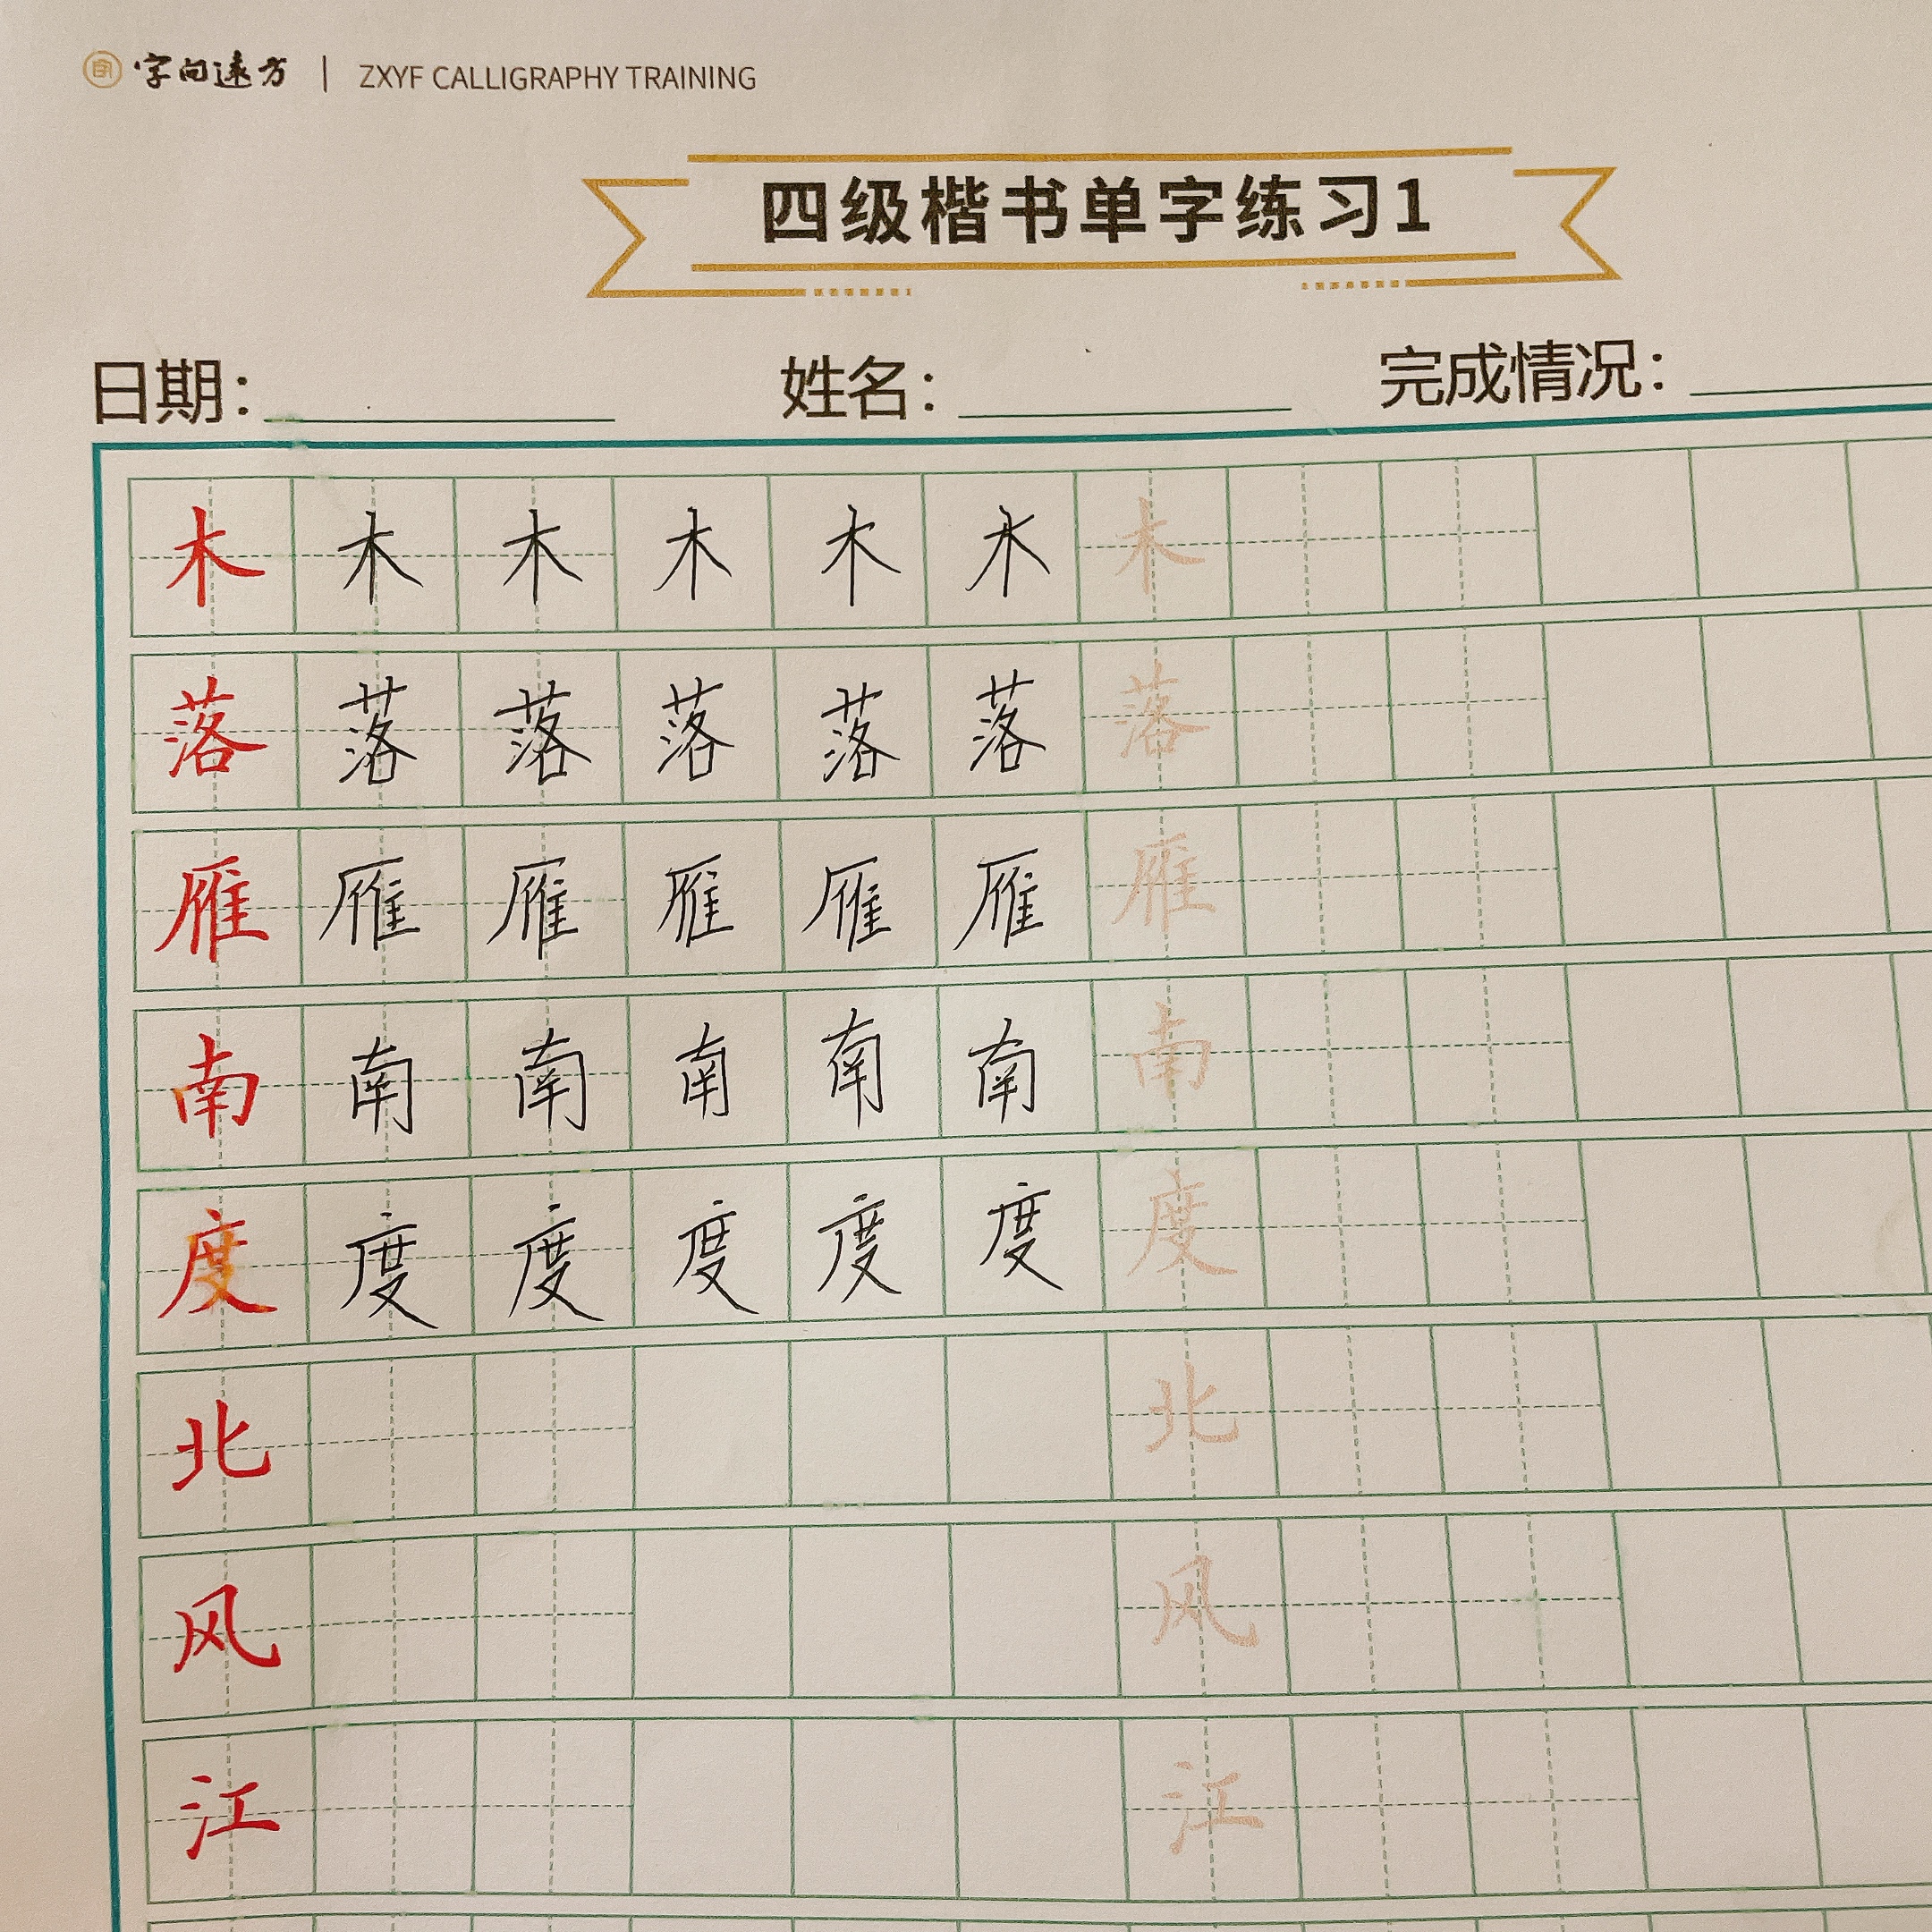 字 字向远方 | ZXYF CALLIGRAPHY TRAINING
四级楷书单字练习1
日期： 姓名： 完成情况：
木 木 木 木 木 木 木
落 落 落 落 落 落 落
雁 雁 雁 雁 雁 雁 雁
南 南 南 南 南 南 南
度 度 度 度 度 度 度
北 北
风 风
江 江